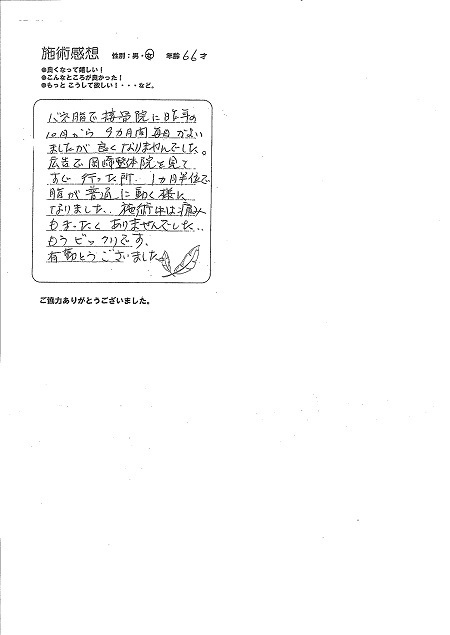 施術感想 性別：男・女 年齢 66才
●良くなって嬉しい！
●こんなところが良かった！
●もっと こうして欲しい！・・・など。
バネ脂で接骨院に昨年の
10月から 9カ月間毎日かよい
ましたが 良くなりませんでした。
広告で岡崎整体院を見て
すぐ行った所. 1カ月半位で
脂が普通に動く様に
なりました.. 施術中は痛み
もまったくありませんでした..
もうビックリです.
有難とうございました
ご協力ありがとうございました。